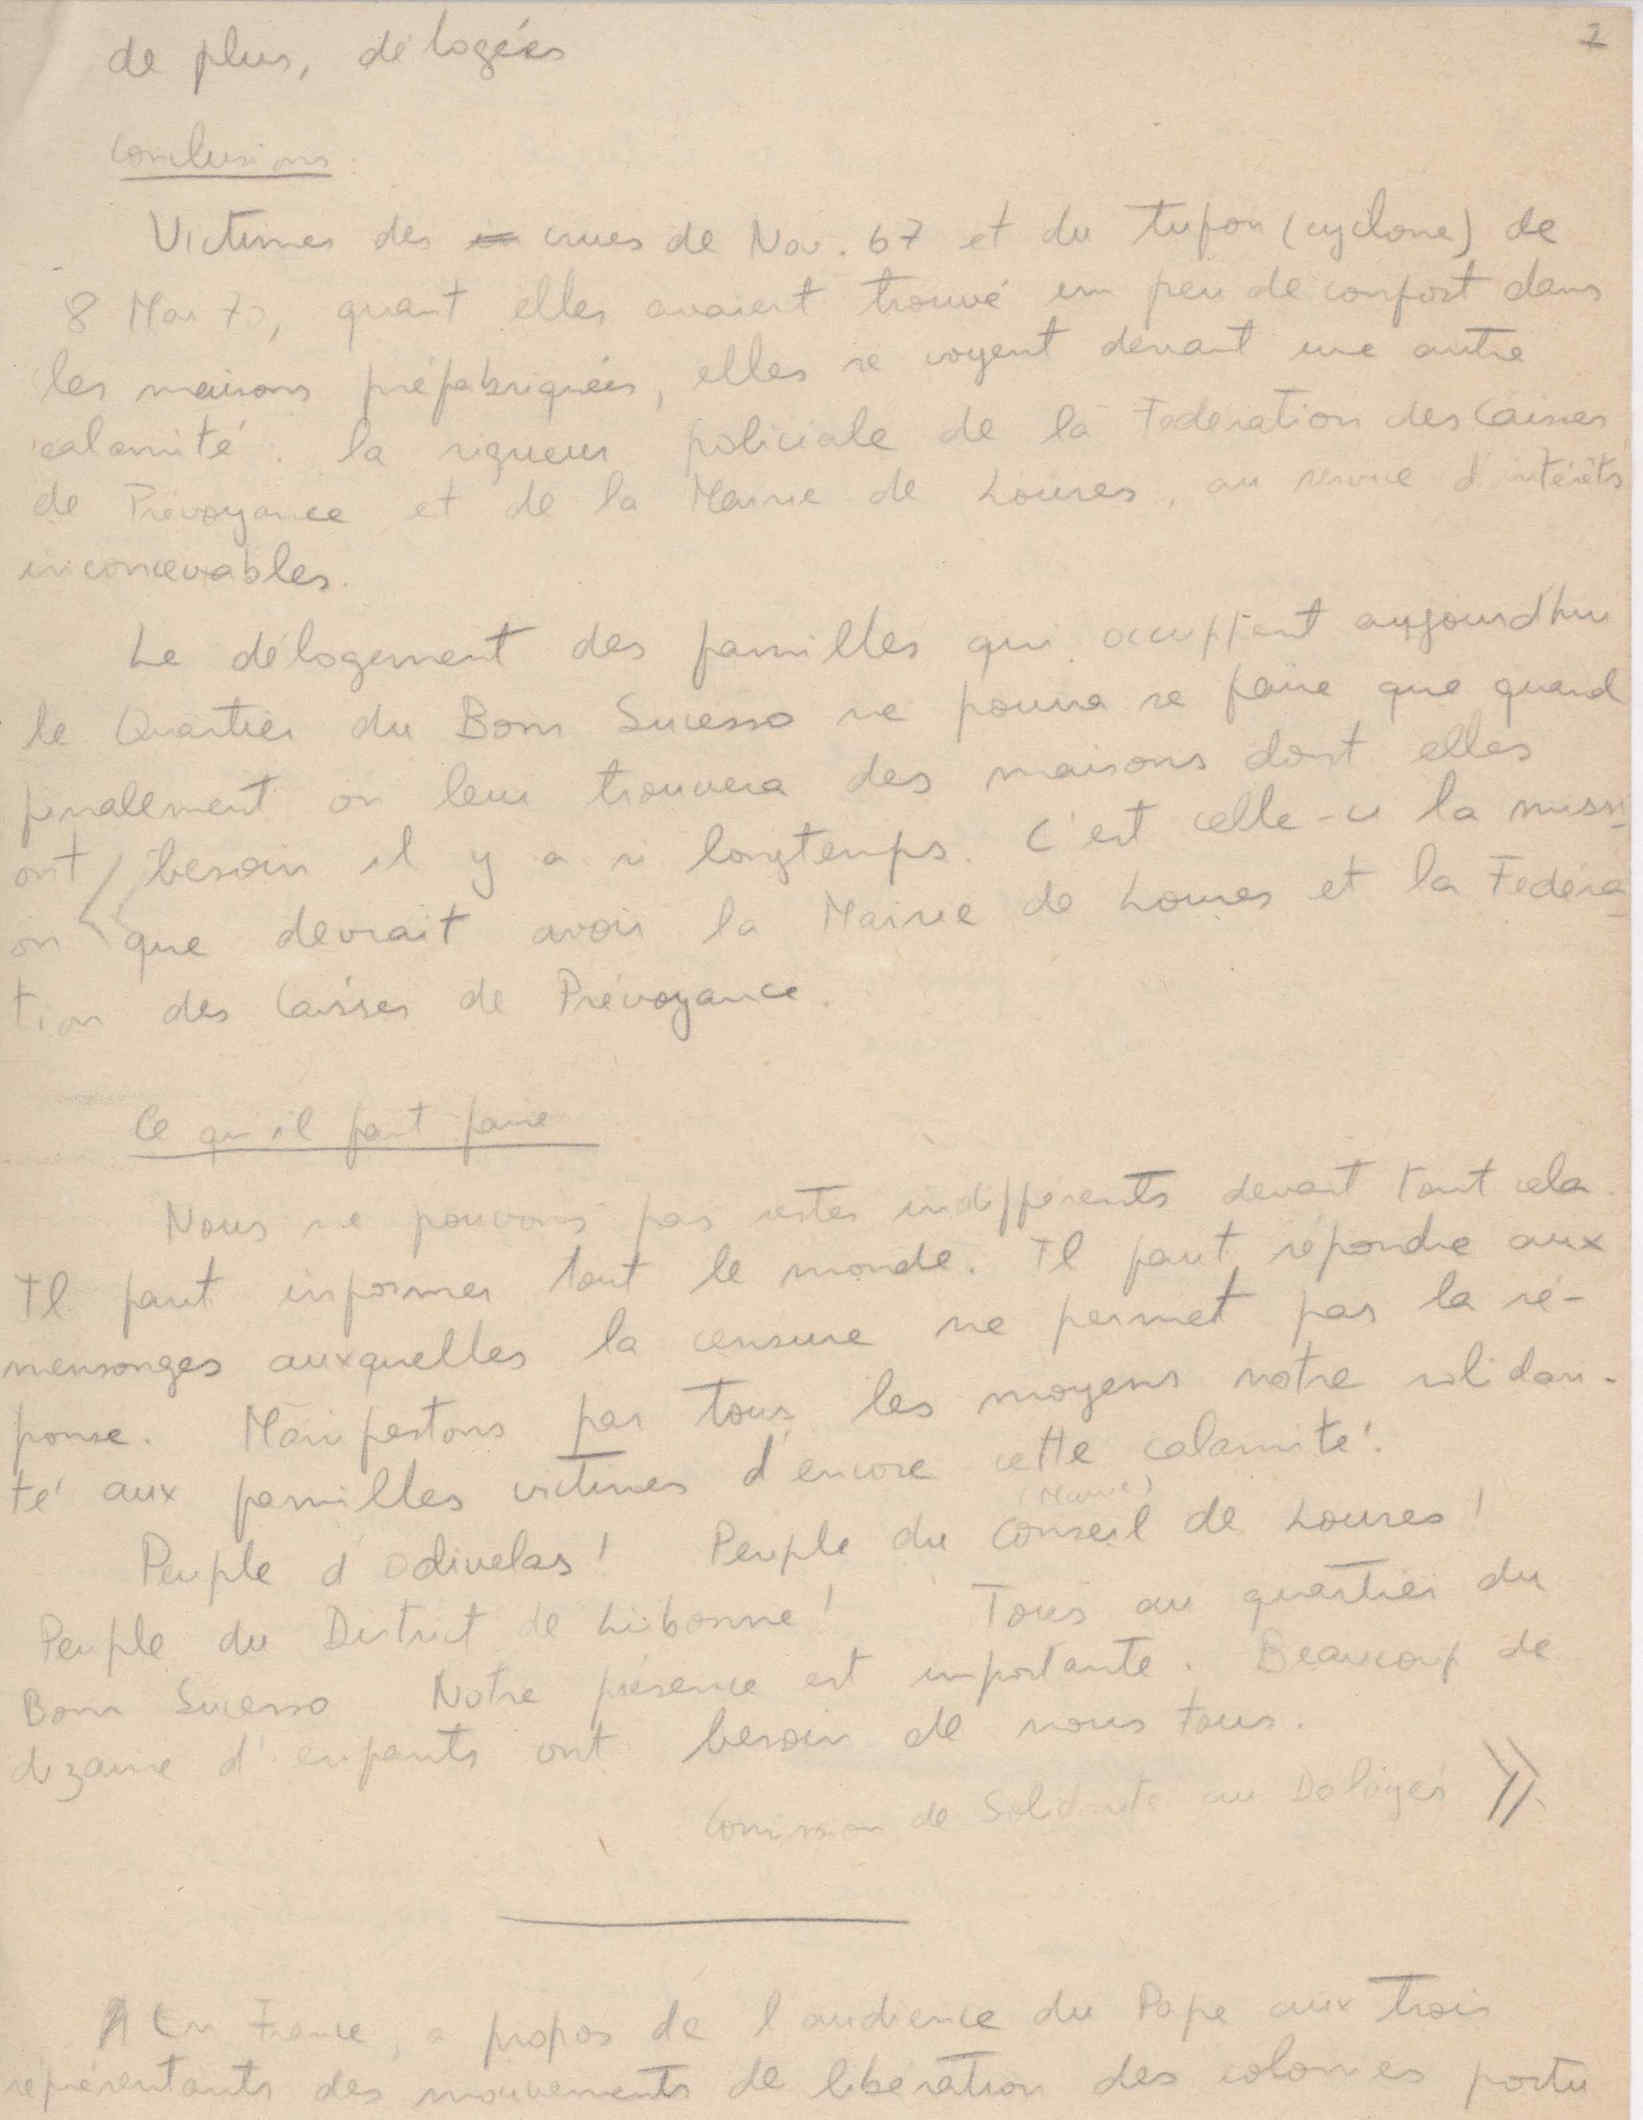 7
de plus, délogées
Conclusions:
Victimes des crues de Nov. 67 et du tufon (cyclone) de
8 Mai 70, quant elles avaient trouvé un peu de confort dans
les maisons préfabriquées, elles se voyent devant une autre
calamité: la rigueur policiale de la Federation des Caisses
de Prévoyance et de la Mairie de Loures, au service d'intérêts
inconcevables.
Le délogement des familles qui occuppent aujourd'hui
le Quartier du Bom Sucesso ne pourra se faire que quand
finalement on leur trouvera des maisons dont elles
ont besoin il y a si longtemps. C'est celle-ci la missi-
on que devrait avoir la Mairie de Loures et la Federa-
tion des Caisses de Prévoyance.
Ce qu'il faut faire
Nous ne pouvons pas rester indifférents devant tout cela.
Il faut informer tout le monde. Il faut répondre aux
mensonges auxquelles la censure ne permet pas la ré-
ponse. Manifestons par tous les moyens notre solidari-
té aux familles victimes d'encore cette calamité!
(Mairie)
Peuple d'Odivelas! Peuple du Conseil de Loures!
Peuple du District de Lisbonne! Tous au quartier du
Bom Sucesso Notre présence est importante. Beaucoup de
dizaine d'enfants ont besoin de nous tous.
Commission de Solidarité au Délogés »
En France, a propos de l'audience du Pape aux trois
représentants des mouvements de libération des colonies portu